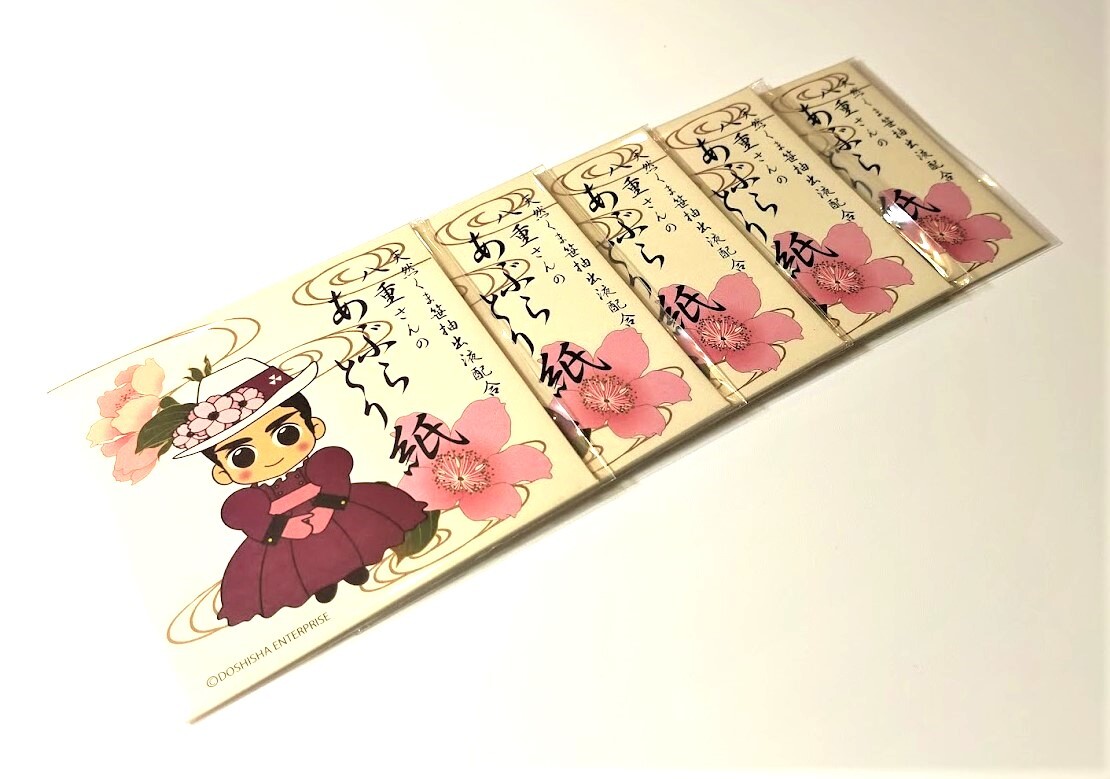 天然くま笹抽出液配合
八重さんの
あぶら
とり
紙
©DOSHISHA ENTERPRISE
天然くま笹抽出液配合
八重さんの
あぶら
とり
紙
天然くま笹抽出液配合
八重さんの
あぶら
とり
紙
天然くま笹抽出液配合
八重さんの
あぶら
とり
紙
天然くま笹抽出液配合
八重さんの
あぶら
とり
紙